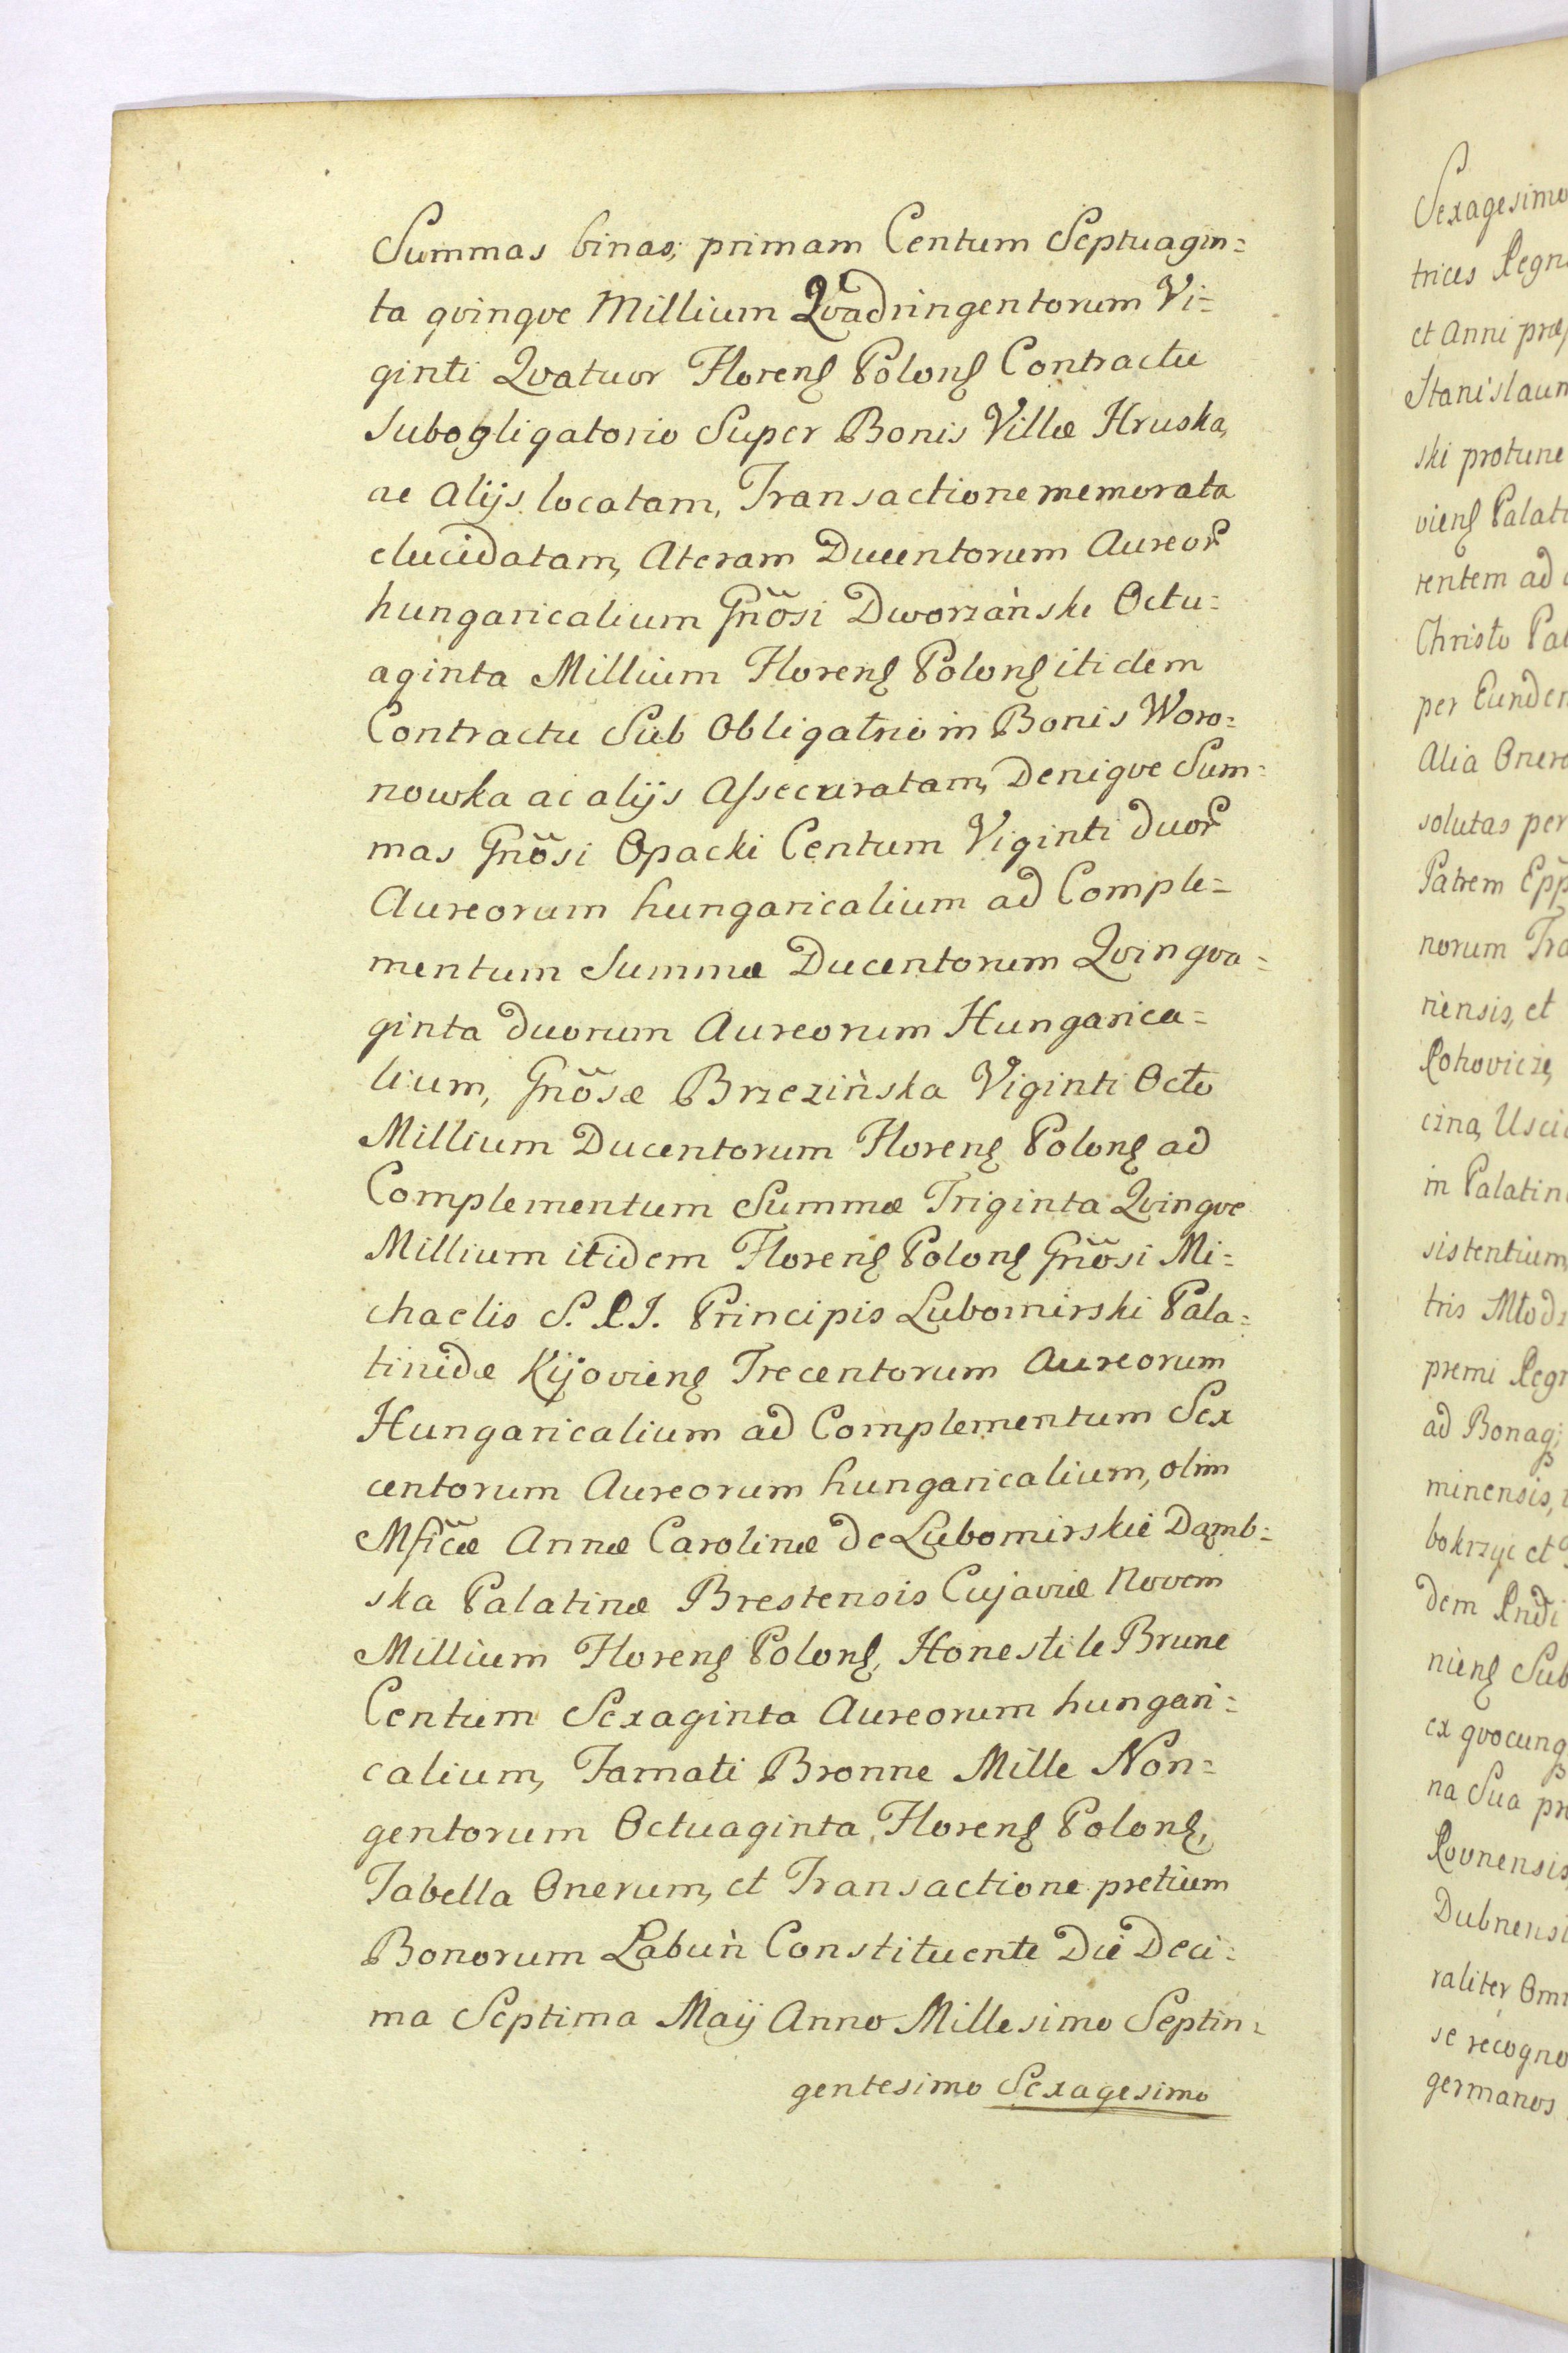 Summas binas, primam Centum Septuagin=
ta qvinqve Millium Qvadringentorum Vi=
ginti Qvatuor Florenʒ Polonʒ Contractu
Subogligatorio Super Bonis Villæ Hruska,
ac Alijs locatam, Transactione memorata
elucidatam, Ateram Ducentorum Aureorꝝ
hungaricalium Gnõsi Dworzański Octu=
aginta Millium Florenʒ Polonʒ itidem
Contractu Sub Obligatrio in Bonis Woro=
nowka ac alijs Assecuratam, Deniqve Sum=
mas Gnõsi Opacki Centum Viginti duorꝝ
Aureorum hungaricalium ad Comple=
mentum Summæ Ducentorum Qvinqva=
ginta duorum Aureorum Hungarica=
lium, Gnõsæ Brzezińska Viginti Octo
Millium Ducentorum Florenʒ Polonʒ ad
Complementum Summæ Triginta Qvinqve
Millium itidem Florenʒ Polonʒ Gnõsi Mi=
chaelis S. R. I. Principis Lubomirski Pala=
tinidæ Kijovienʒ Trecentorum Aureorum
Hungaricalium ad Complementum Sex
centorum Aureorum hungaricalium, olim
Mficæ Annæ Carolinæ de Lubomirskie Dąmb=
ska Palatinæ Brestensis Cujaviæ Novem
Millium Florenʒ Polonʒ, Honesti le Brune
Centum Sexaginta Aureorum hungari=
calium, Famati Bronne Mille Non=
gentorum Octuaginta Florenʒ Polonʒ,
Tabella Onerum, et Transactione pretium
Bonorum Łabuń Constituente Die Deci=
ma Septima Maij Anno Millesimo Septin=
gentesimo Sexagesimo
Sexagesimo
trices Regn
et Anni præ
Stanislaum
ski protunc
vienʒ Palat
rentem ad
Christo Pa
per Eundem
Alia Onera
solutas per
Patrem Epp
norum Tra
niensis, et
Rohovicze,
czna, Usci
in Palatin
sistentium,
tris Młodz
premi Regn
ad Bonaq;
minensis,
bokrzyc et
dem Rndi
nienʒ Sub
ex qvocunq
na Sua pr
Rovnensis
Dubnensi
raliter Om
se recogno
germanos